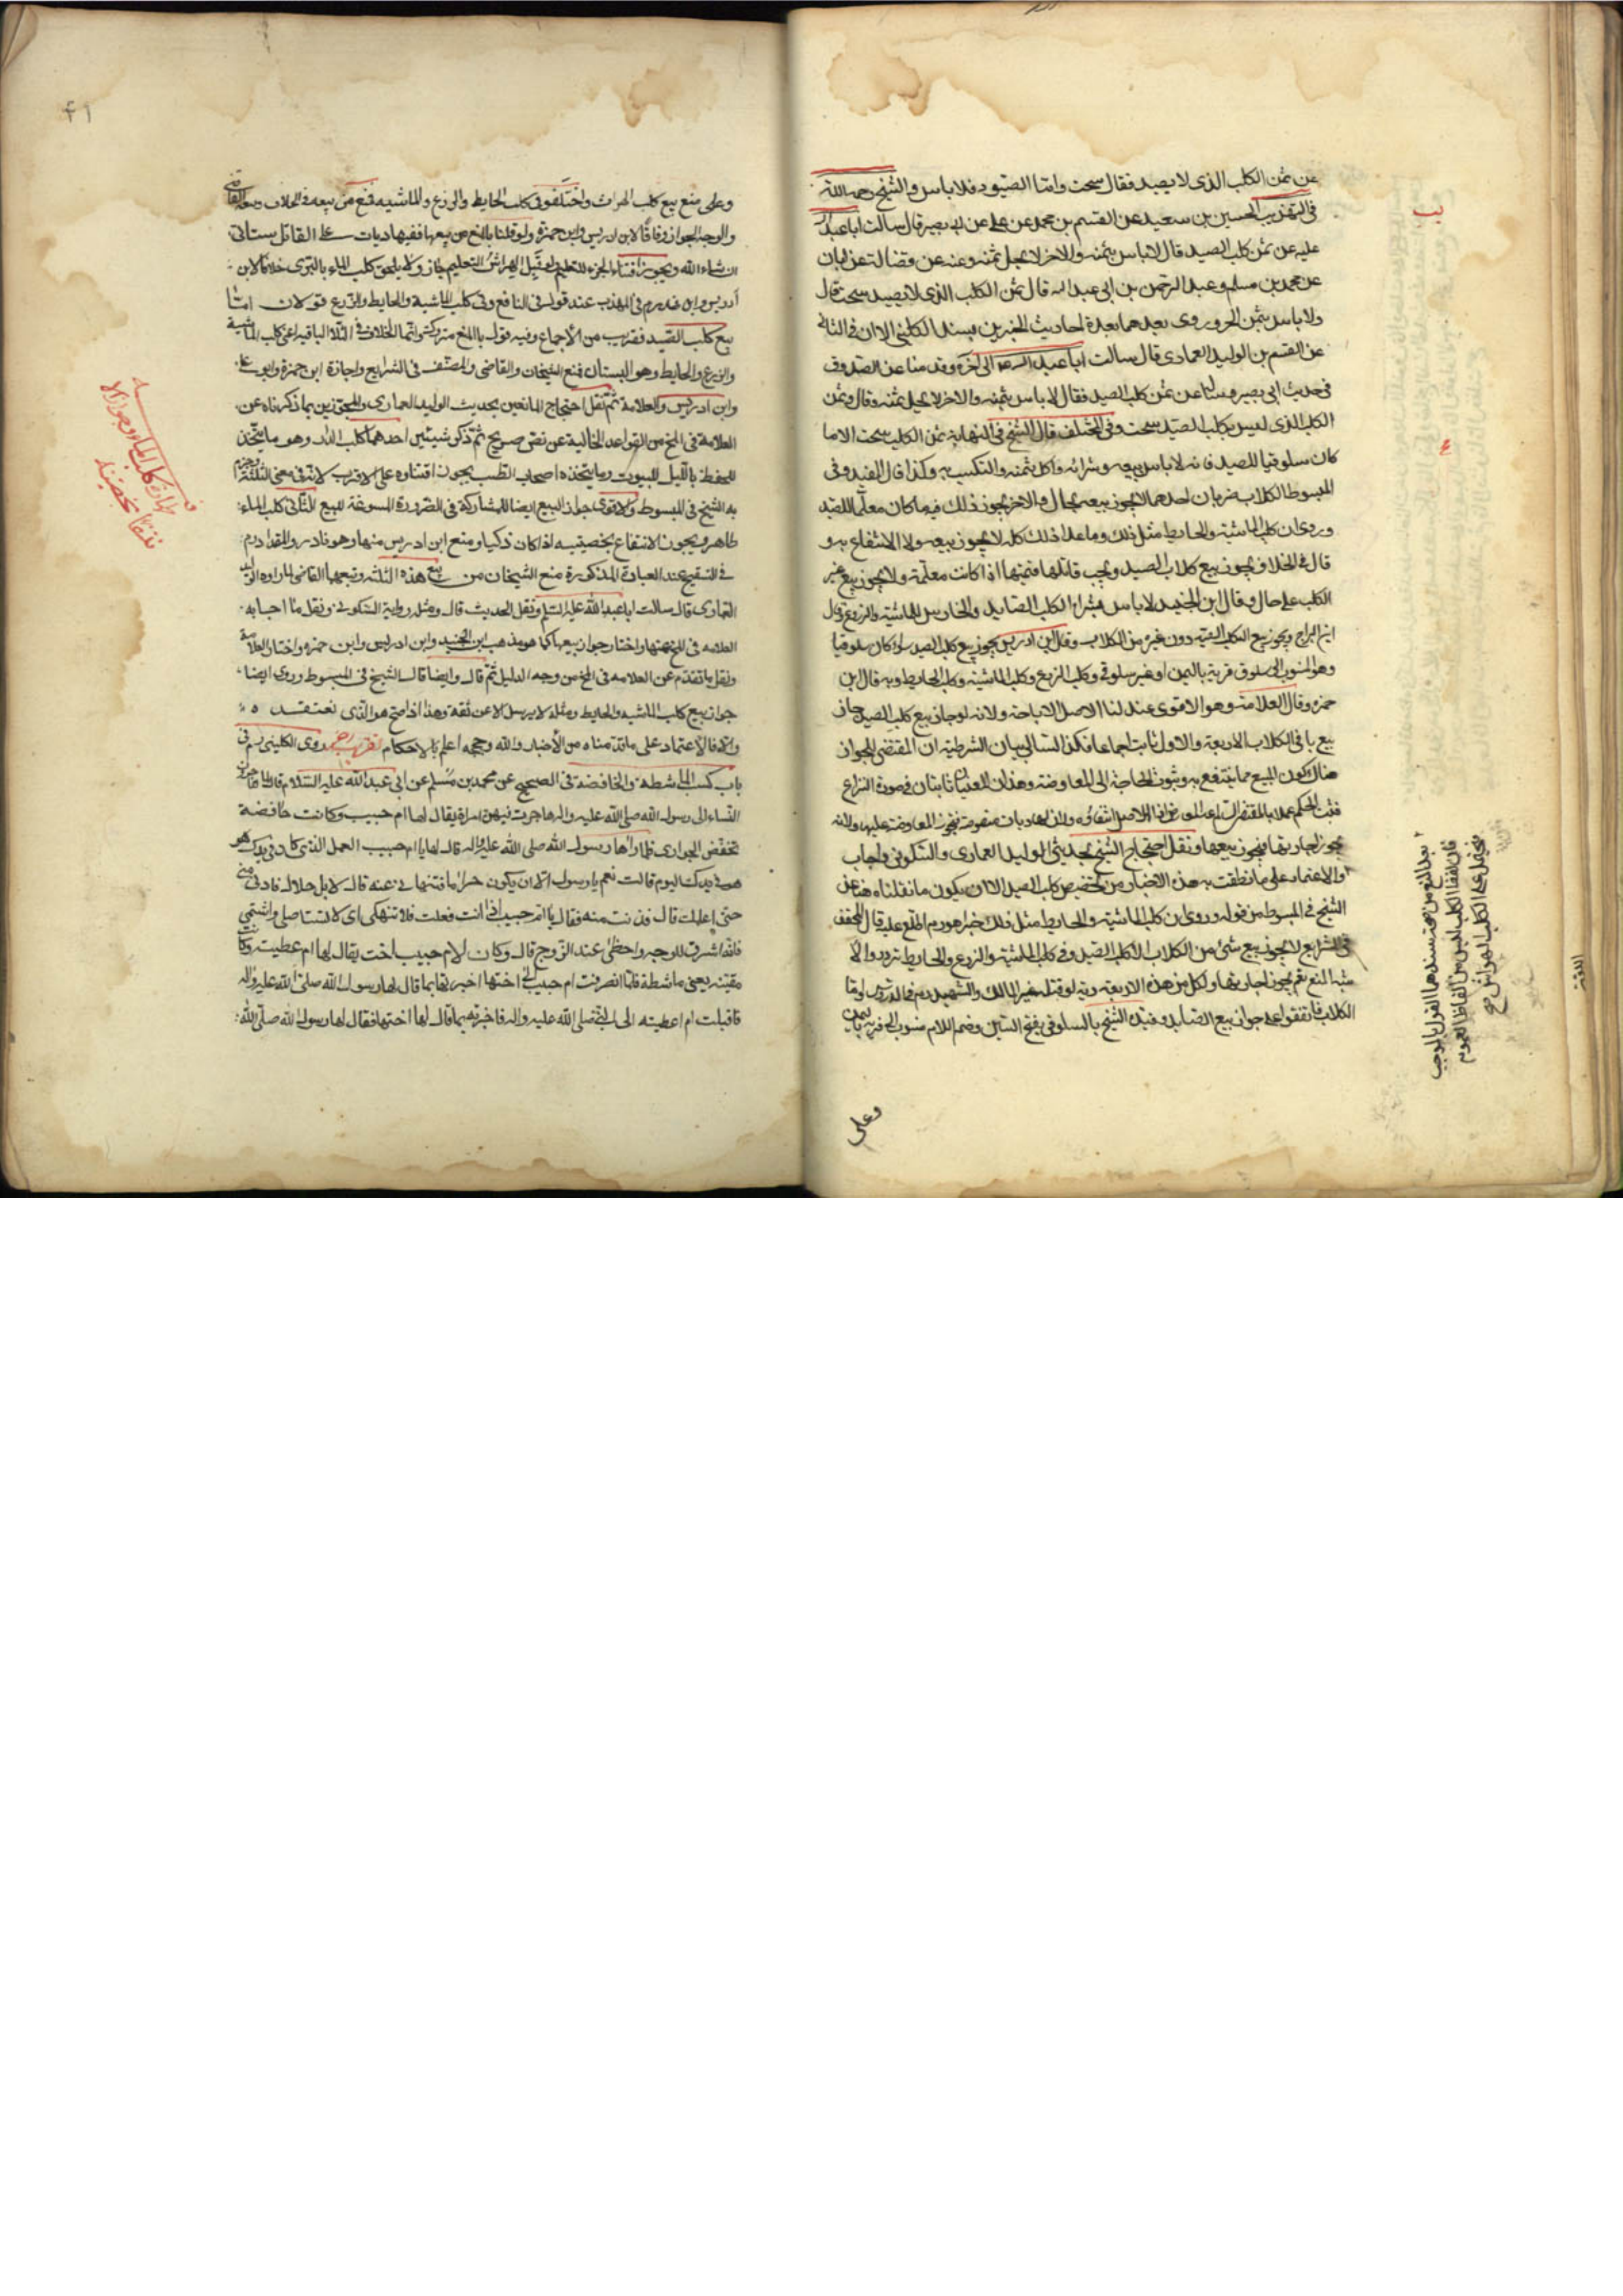 عن ثمن الكلب الذى لا يصيد فقال سحت واما الصيود فلا باس والشيخ رحمه الله
فى التهذيب الحسين بن سعيد عن القسم بن محمد عن على عن ابى بصير قال سالت ابا عبد الله
عليه عن ثمن كلب الصيد قال لا باس بثمنه والاخر لا يحل ثمنه وعنه عن فضالة عن ابان
عن محمد بن مسلم وعبد الرحمن بن ابى عبد الله قال ثمن الكلب الذى لا يصيد سحت قال
ولا باس بثمن الهر وروى بعدهما بعدة احاديث الخبرين بسند الكلينى الا ان فى الثانى
عن القسم بن الوليد العمارى قال سالت ابا عبد الله الى آخره وقد منا عن الصدوق
فى حديث ابى بصير عن ثمن كلب الصيد فقال لا باس بثمنه والاخر لا يحل ثمنه وقال وثمن
الكلب الذى ليس بكلب الصيد سحت وفى المختلف قال الشيخ فى النهاية ثمن الكلب سحت الا ما
كان سلوقيا للصيد فانه لا باس ببيعه وشرائه واكل ثمنه والتكسب به وكذا قال المفيد وفى
المبسوط الكلاب ضربان احدهما لا يجوز بيعه بحال والاخر يجوز ذلك فيه ما كان معلما للصيد
وروى ان كلب الماشية والحايط مثل ذلك وما عدا ذلك كله لا يجوز بيعه ولا الانتفاع به و
قال فى الخلاف يجوز بيع كلاب الصيد ويجب قاتلها قيمتها اذا كانت معلمة ولا يجوز بيع غير
الكلب على حال وقال ابن الجنيد لا باس بشراء الكلب الصايد والحارس للماشية والزرع وقال
ابن البراج ويجوز بيع الكلب الصيد دون غيره من الكلاب وقال ابن ادريس يجوز بيع كلب الصيد سواء كان سلوقيا
وهو المنسوب الى سلوق قرية باليمن او غير سلوقى وكلب الزرع وكلب الماشية وكلب الحايط وبه قال ابن
حمزه وقال العلامة وهو الاقوى عندى لنا الاصل الاباحة ولانه لو جاز بيع كلب الصيد جاز
بيع باقى الكلاب الاربعة والاول ثابت اجماعا فكذا التالى بيان الشرطية ان المقتضى للجواز
هناك كون المبيع مما ينتفع به وثبوت الحاجة الى المعاوضة وهذان المعنيان ثابتان فى صورة النزاع
فثبت الحكم عملا بالمقتضى
يجوز اجارتها فيجوز بيعها ونقل احتجاج الشيخ بحديثى الوليد العمارى والسكونى واجاب
والاعتماد على ما نطقت به هذه الاخبار من تخصيص كلب الصيد الا ان يكون ما نقلناه هنا عن
الشيخ فى المبسوط من قوله وروى ان كلب الماشية والحايط مثل ذلك خبرا
فى الشرايع لا يجوز بيع شئ من الكلاب الا كلب الصيد وفى كلب الماشية والزرع والحايط تردد والا
شبه المنع نعم يجوز اجارتها ولكل من هذه الاربعة دية لو قتله غير المالك والشهيد
الكلاب فاتفقوا على جواز بيع الصايد وقيده الشيخ بالسلوقى بفتح السين وضم اللام منسوب الى قرية باليمن
وعلى
فان لفظ الكلب ليس من الفاظ العموم
فيحمل على الكلب الهراش
٤١
وعلى منع بيع كلب الهراش واختلفوا فى كلب الحايط والزرع والماشيه فمنع من بيعه فى الخلاف وبيعه القاضى
والوجه الجواز وفاقا لابن ادريس وابن حمزه ولو قلنا بالمنع من بيعها ففيها ديات على القاتل ستاتى
ان شاء الله ويجوز اقتناء الجرو للتعليم لو قبل الهراش التعليم جاز ولا يلحق كلب الماء بالبرى خلافا لابن
ادريس وابن فهد رم فى المهذب عند قوله فى النافع وفى كلب الماشية والحايط والزرع قولان اما
بيع كلب الصيد فقريب من الاجماع وفيه قول بالمنع متروك وانما الخلاف فى الثلاثة الباقيه اعنى كلب الماشية
والزرع والحايط وهو البستان فمنع الشيخان والقاضى والمصنف فى الشرايع واجازة ابن حمزة وابو على
وابن ادريس والعلامة ثم نقل احتجاج المانعين بحديث الوليد العمارى والمجوزين بما ذكرناه عن
العلامة فى المخ من القواعد الخالية عن نص صريح ثم ذكر شيئين احدهما كلب الدار وهو ما يتخذ
للحفظ بالليل للبيوت وما يتخذه اصحاب الطنب يجوز اقتناؤه على الاقرب لانه فى معنى الثلثة وجزم
به الشيخ فى المبسوط والاقوى جواز البيع ايضا للمشاركة فى الضرورة المسوغة للبيع الثانى كلب الماء
طاهر ويجوز الانتفاع بخصيتيه اذا كان ذكيا ومنع ابن ادريس منها وهو نادر والمقداد رم
فى التنقيح عند العبارة المذكورة منع الشيخان من بيع هذه الثلثه وتبعهما القاضى لما رواه الوليد
العمارى قال سالت ابا عبد الله عليه السلم ونقل الحديث قال ومثله رواية السكونى ونقل ما اجاب به
العلامه فى المخ عنها واختار جواز بيعها كما هو مذهب ابن الجنيد وابن ادريس وابن حمزه واختار العلامة
ونقل ما تقدم عن العلامه فى المخ من وجه الدليل ثم قال وايضا قال الشيخ فى المبسوط وروى ايضا
جواز بيع كلب الماشيه والحايط ومثله لا يرسل الا عن ثقة وهذا اذا صح هو الذى نعتقد
والا فالاعتماد على ما قدمناه من الاخبار والله وحججه اعلم بالاحكام روى الكلينى رم فى
باب كسب الماشطه والخافضة فى الصحيح عن محمد بن مسلم عن ابى عبد الله عليه السلام قال لما هاجرن
النساء الى رسول الله صلى الله عليه واله هاجرت فيهن امراة يقال لها ام حبيب وكانت خافضة
تخفض الجوارى فلما رآها رسول الله صلى الله عليه واله قال لها يا ام حبيب العمل الذى كان فى يدك هو
هو فى يدك اليوم قالت نعم يا رسول الله الا ان يكون حراما فتنهانى عنه قال لا بل حلال فادنى منى
حتى اعلمك قال فدنت منه فقال يا ام حبيب اذا انت فعلت فلا تنهكى اى لا تستاصلى واشمى
فانه اشرق للوجه واحظى عند الزوج قال وكان لام حبيب اخت يقال لها ام عطيه وكانت
مقينه يعنى ماشطة فلما انصرفت ام حبيب الى اختها اخبرتها بما قال لها رسول الله صلى الله عليه واله
فاقبلت ام عطيته الى النبى صلى الله عليه واله فاخبرته بما قالت لها اختها فقال لها رسول الله صلى الله